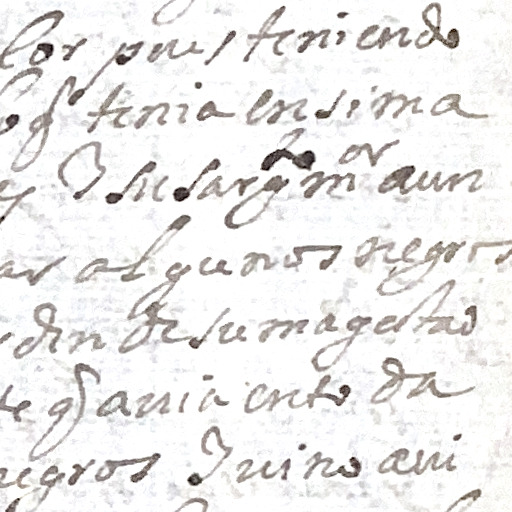 los pues teniendo
q tenia ensima
y Y su sarg.to m.or aun
ar algunos negros
rden de su magestad
te q auia en to da
negros Y uino aui